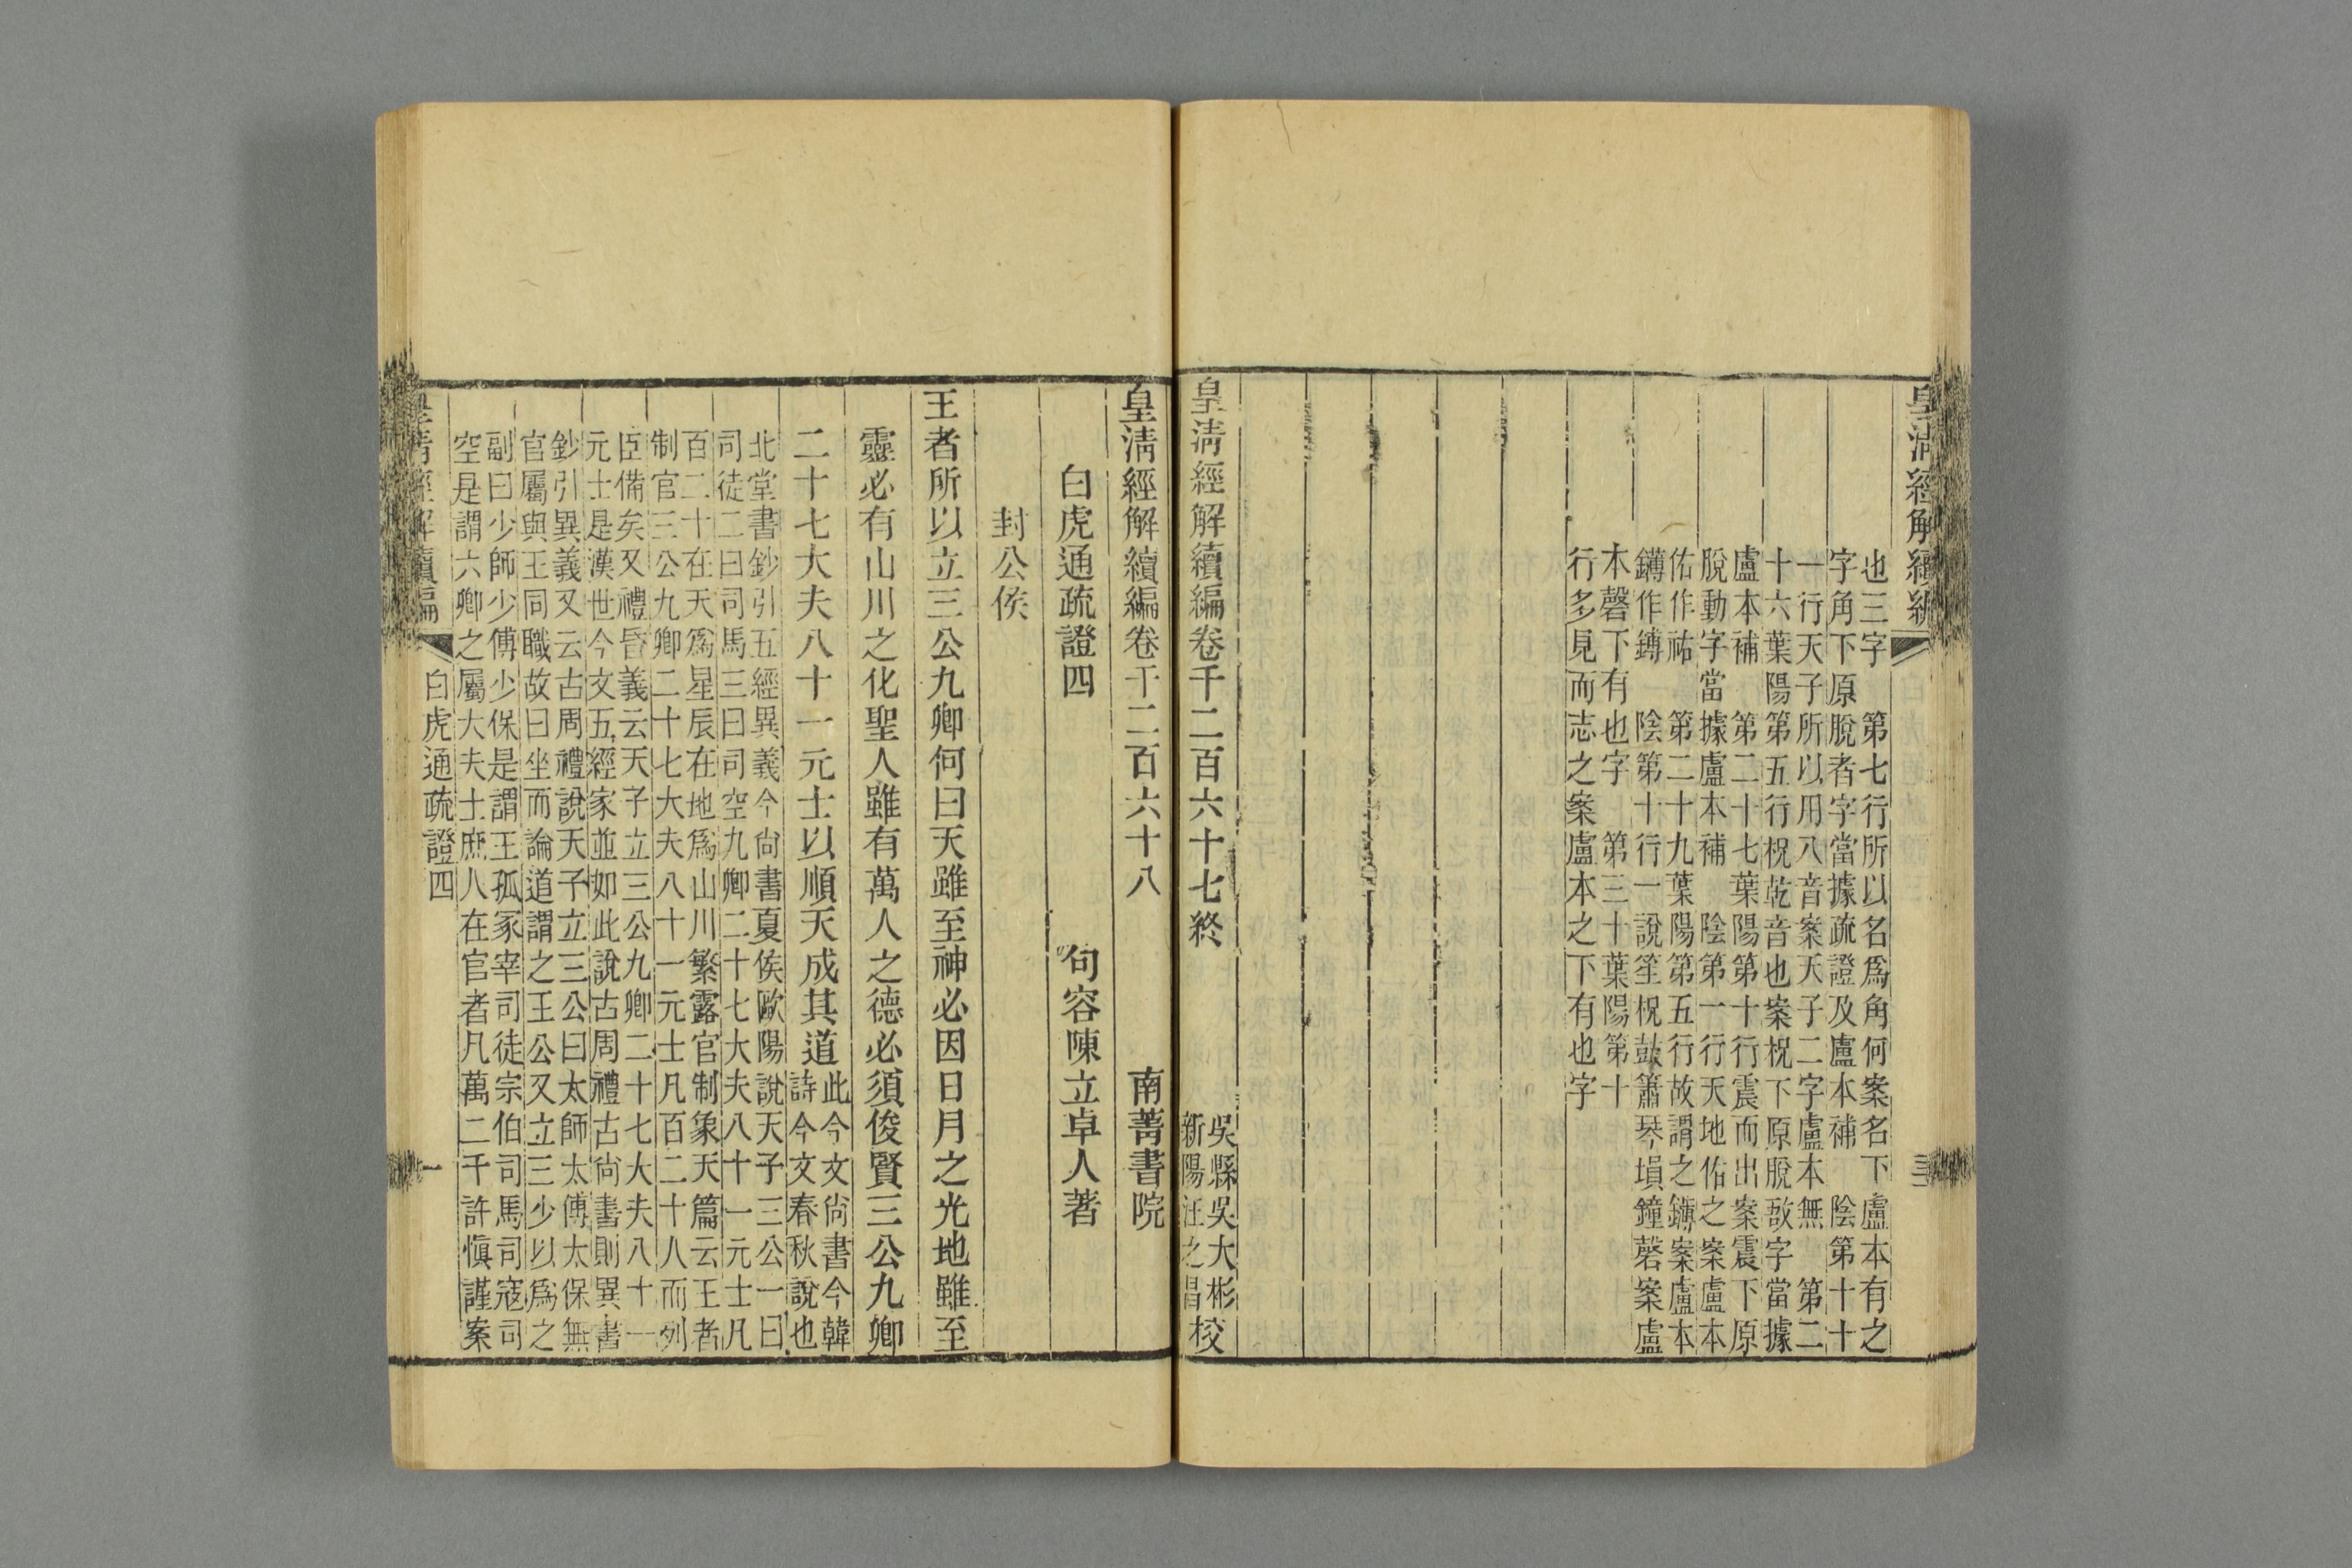 皇清經解續編
三
也三字　第七行所以名爲角何案名下盧本有之
字角下原脫者字當據疏證及盧本補　陰第十十
一行天子所以用八音案天子二字盧本無　第二
十六葉陽第五行柷乾音也案柷下原脫敔字當據
盧本補　第二十七葉陽第十行震而出案震下原
脫動字當據盧本補　陰第一行天地佑之案盧本
佑作祐　第二十九葉陽第五行故謂之鏄案盧本
鏄作鎛　陰第十行一說笙柷鼓簫琴塤鐘磬案盧
本磬下有也字　第三十葉陽第十
行多見而志之案盧本之下有也字
皇淸經解續編卷千二百六十七終
吳縣吳大彬
新陽汪之昌
校
皇淸經解續編卷千二百六十八　南菁書院
白虎通疏證四　句容陳立卓人著
封公侯
王者所以立三公九卿何曰天雖至神必因日月之光地雖至
靈必有山川之化聖人雖有萬人之德必須俊賢三公九卿
二十七大夫八十一元士以順天成其道
此今文尙書今韓
詩今文春秋說也
北堂書鈔引五經異義今尙書夏侯歐陽說天子三公一曰
司徒二曰司馬三曰司空九卿二十七大夫八十一元士凡
百二十在天爲星辰在地爲山川繁露官制象天篇云王者
制官三公九卿二十七大夫八十一元士凡百二十八而列
臣備矣又禮昏義云天子立三公九卿二十七大夫八十一
元士是漢世今文五經家並如此說古周禮古尙書則異書
鈔引異義又云古周禮說天子立三公曰太師太傅太保無
官屬與王同職故曰坐而論道謂之王公又立三少以爲之
副曰少師少傅少保是謂王孤冢宰司徒宗伯司馬司寇司
空是謂六卿之屬大夫士庶人在官者凡萬二千許愼謹案
皇清經解續編
白虎通疏證四
一